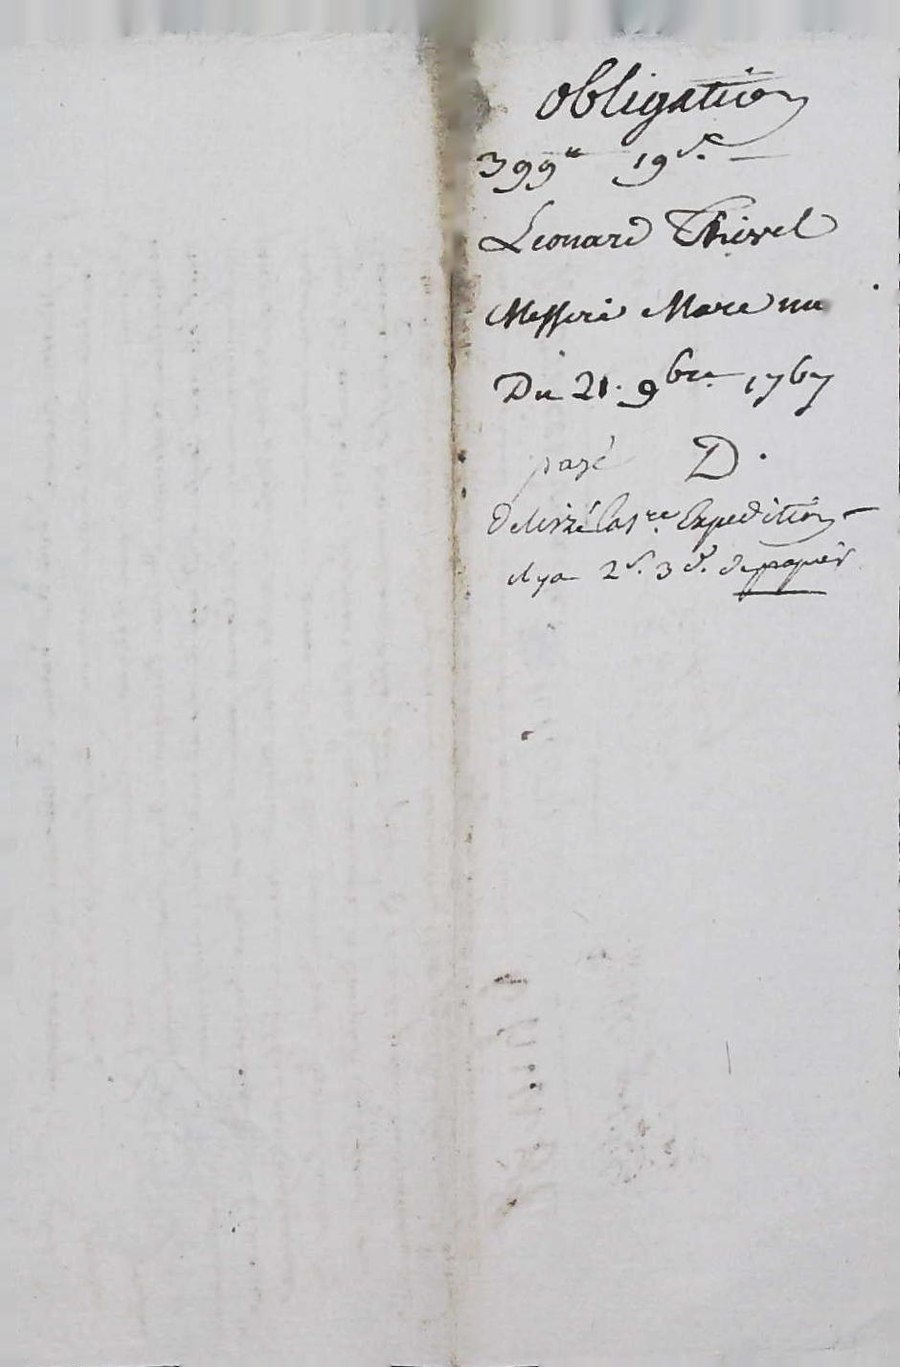 obligation
399ᵗᵗ 19ˢ.
Leonard Thivel
Messire
Du 21. 9bre. 1767
payé D.
Delivré la 1re Expedition
il y a 2ˢ. 3ᵈ. de papier